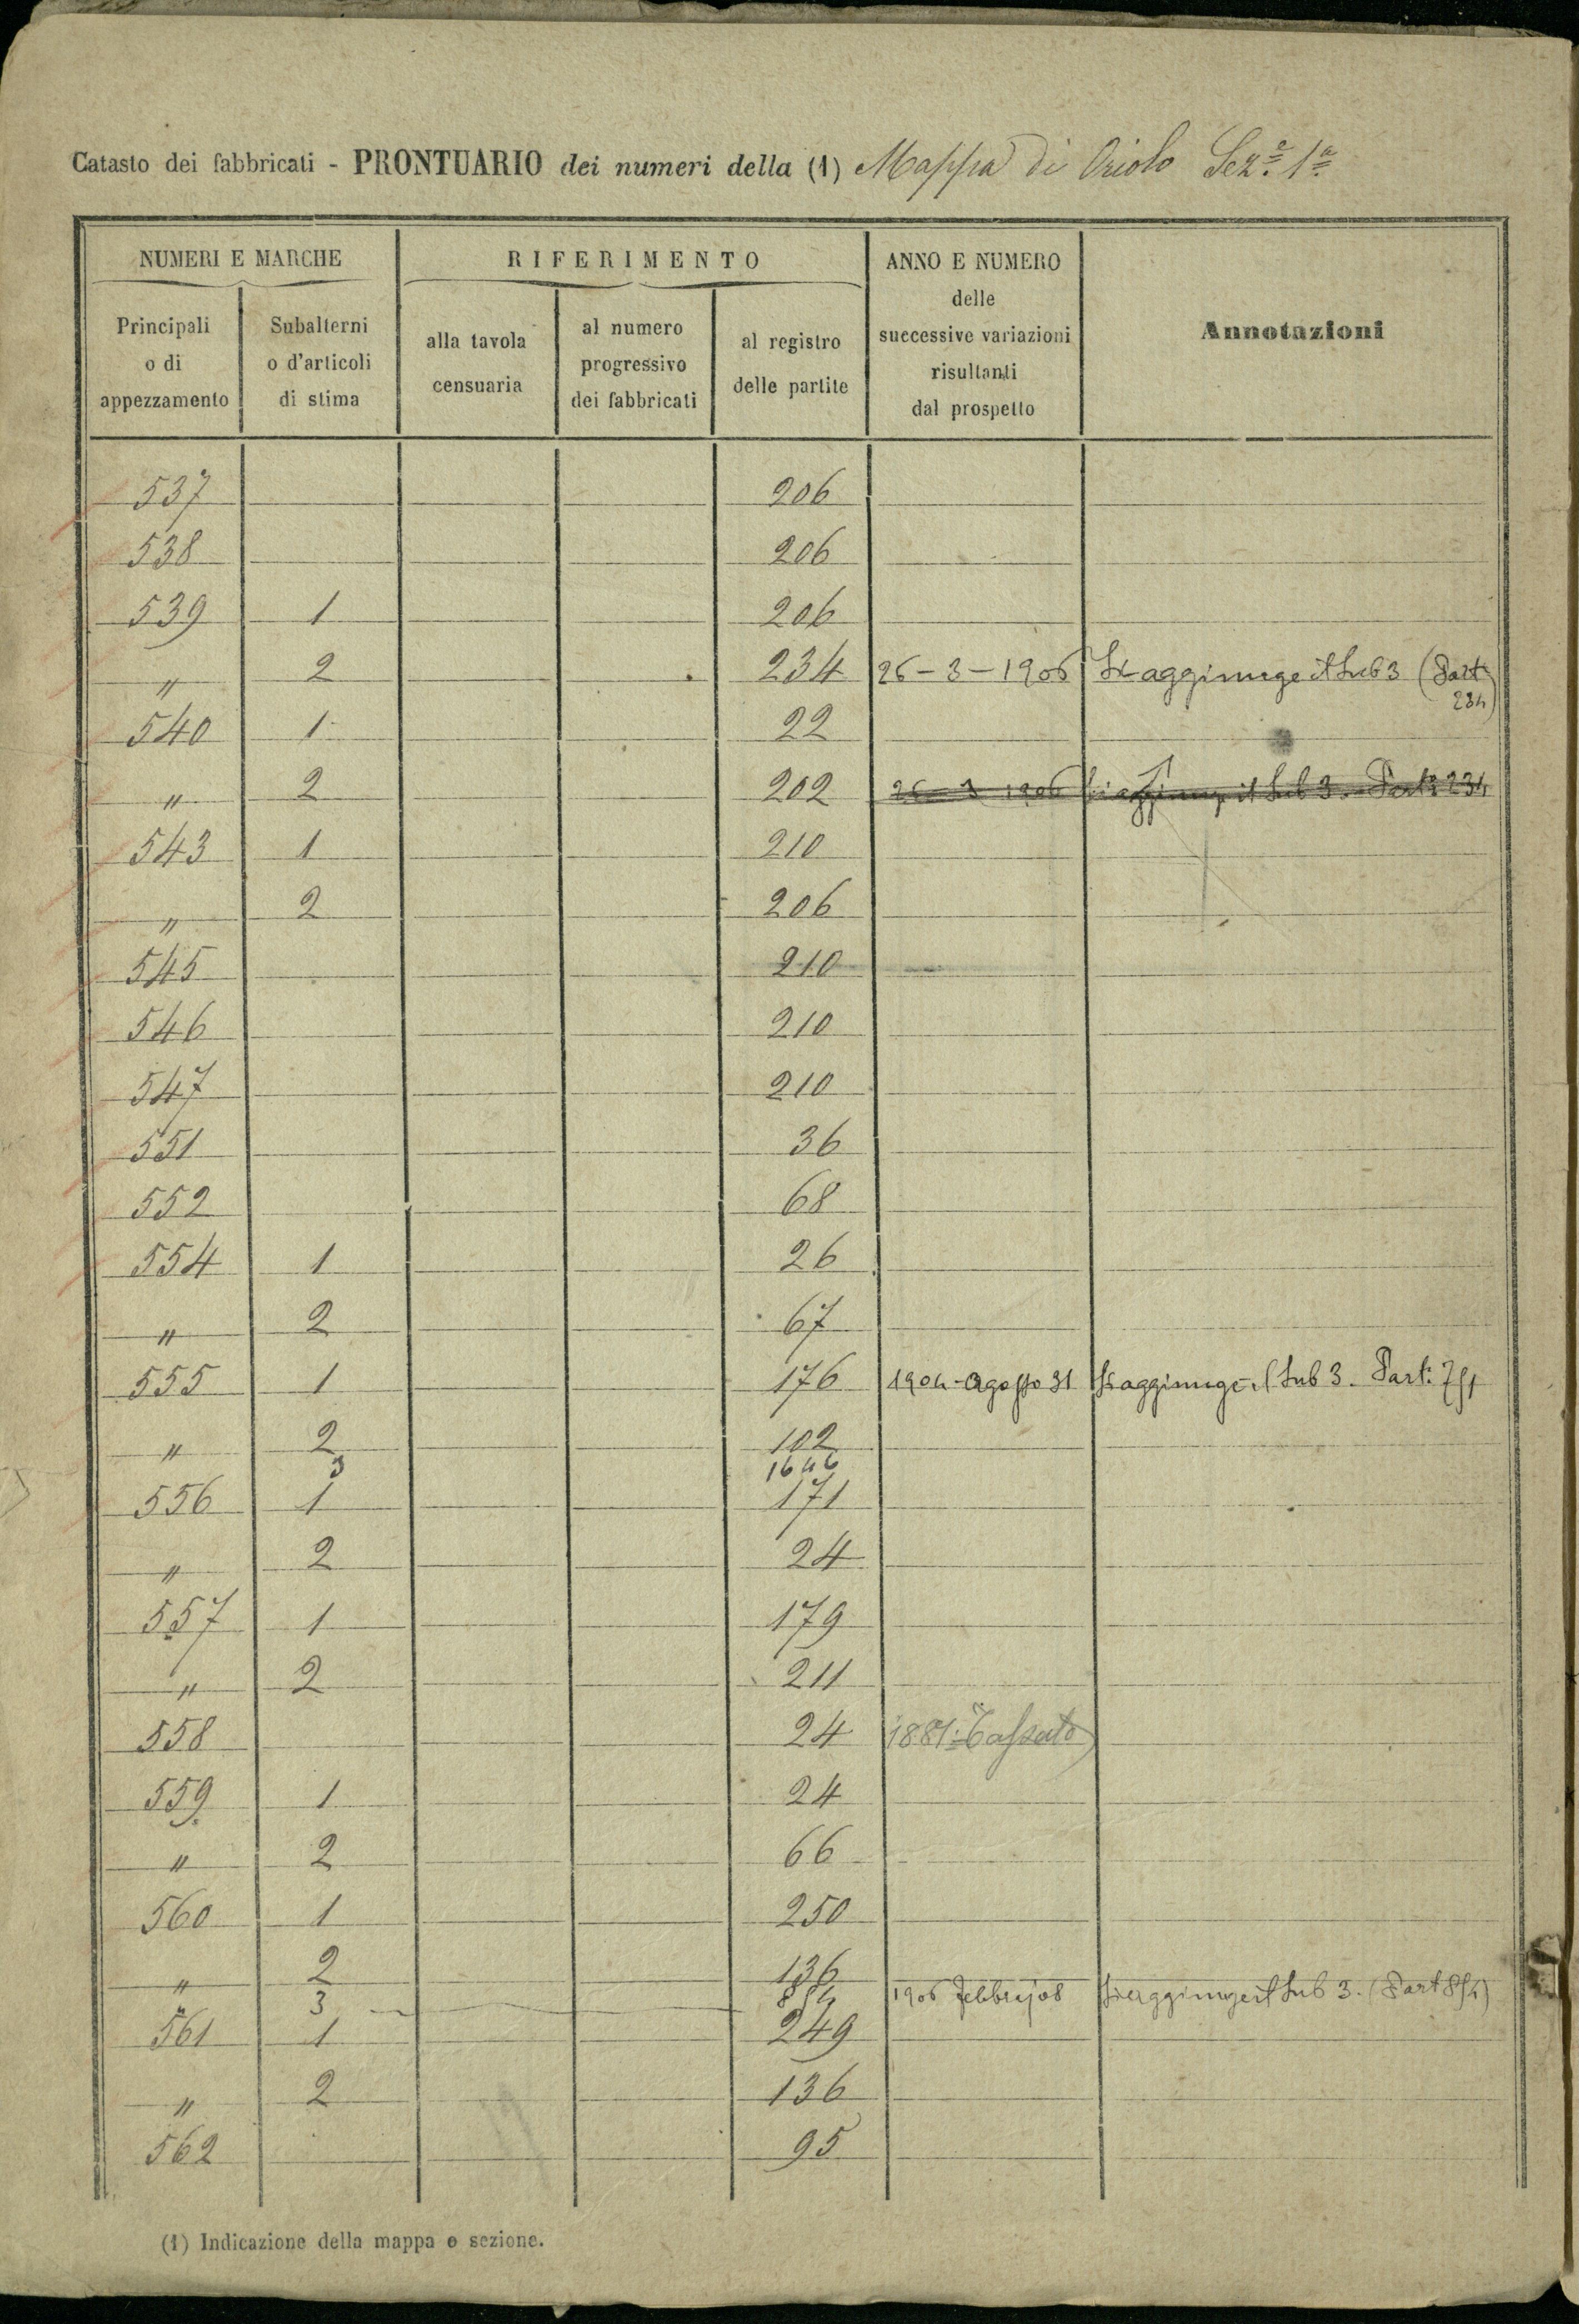 Catasto dei fabbricati - PRONTUARIO dei numeri della (1) Mappa di Oriolo Sez.e 1a
NUMERI E MARCHE
RIFERIMENTO
ANNO E NUMERO
delle
successive variazioni
risultanti
dal prospetto
Annotazioni
Principali
o di
appezzamento
Subalterni
o d'articoli
di stima
alla tavola
censuaria
al numero
progressivo
dei fabbricati
al registro
delle partite
537 206
538 206
539 1 206
" 2 234 26-3-1906 Si aggiunge il Sub 3 (Part
234)
540 1 22
" 2 202 26-3-1906 Si aggiunge il Sub 3. Parta 234
543 1 210
" 2 206
545 210
546 210
547 210
551 36
552 68
554 1 26
" 2 67
555 1 176 1904-Agosto 31 Si aggiunge il Sub 3. Part:
" 2 102
3 1646
556 1 171
" 2 24
557 1 179
" 2 211
558 24 1881: Tassato
559 1 24
" 2 66
560 1 250
" 2 136
3 1906 Febbraj 08 Si aggiunge il Sub 3. (Part
561 1 249
" 2 136
562 95
(1) Indicazione della mappa e sezione.